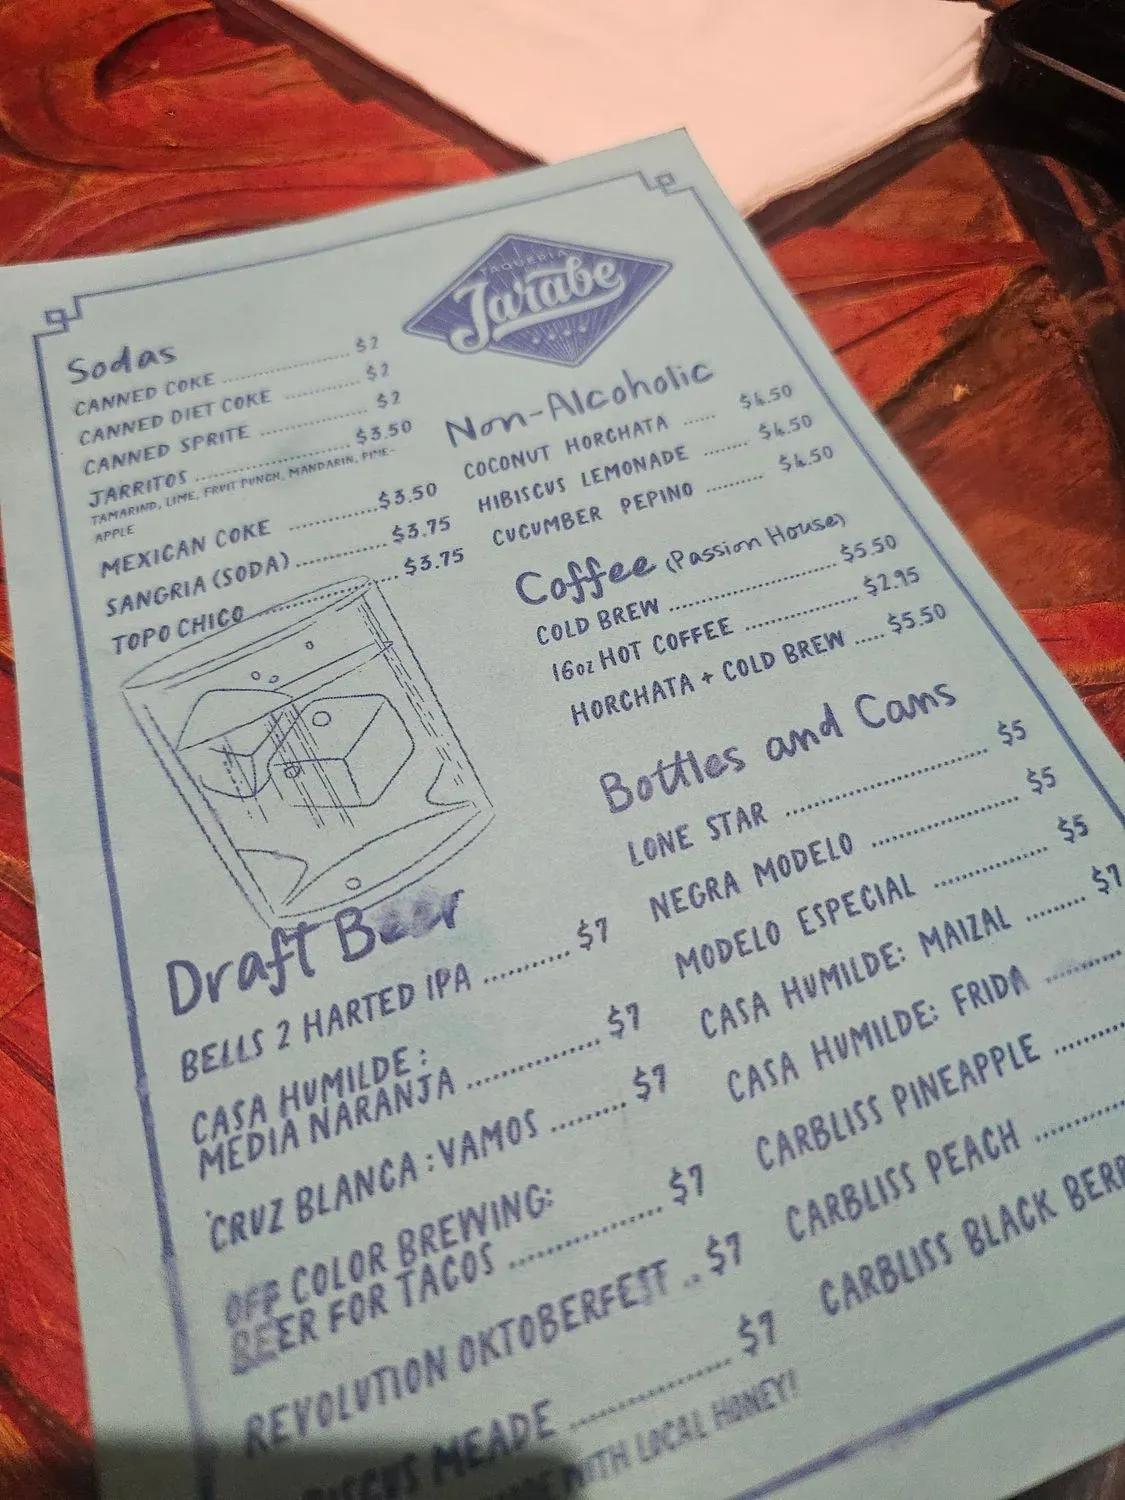 TAQUERIA
Jarabe
Sodas
CANNED COKE .......... $2
CANNED DIET COKE .......... $2
CANNED SPRITE .......... $2
JARRITOS .......... $3.50
TAMARIND, LIME, FRUIT PUNCH, MANDARIN, PINE-
APPLE
MEXICAN COKE .......... $3.50
SANGRIA (SODA) .......... $3.75
TOPO CHICO .......... $3.75
Draft Beer
BELLS 2 HARTED IPA .......... $7
CASA HUMILDE:
MEDIA NARANJA .......... $7
CRUZ BLANCA: VAMOS .......... $7
OFF COLOR BREWING:
BEER FOR TACOS .......... $7
REVOLUTION OKTOBERFEST .. $7
MEADE .......... $7
WITH LOCAL HONEY!
Non-Alcoholic
COCONUT HORCHATA ...... $4.50
HIBISCUS LEMONADE ........ $4.50
CUCUMBER PEPINO .......... $4.50
Coffee (Passion House)
COLD BREW .......... $5.50
16oz HOT COFFEE .......... $2.95
HORCHATA + COLD BREW ..... $5.50
Bottles and Cans
LONE STAR .......... $5
NEGRA MODELO .......... $5
MODELO ESPECIAL .......... $5
CASA HUMILDE: MAIZAL ........ $7
CASA HUMILDE: FRIDA ..........
CARBLISS PINEAPPLE ..........
CARBLISS PEACH ..........
CARBLISS BLACK